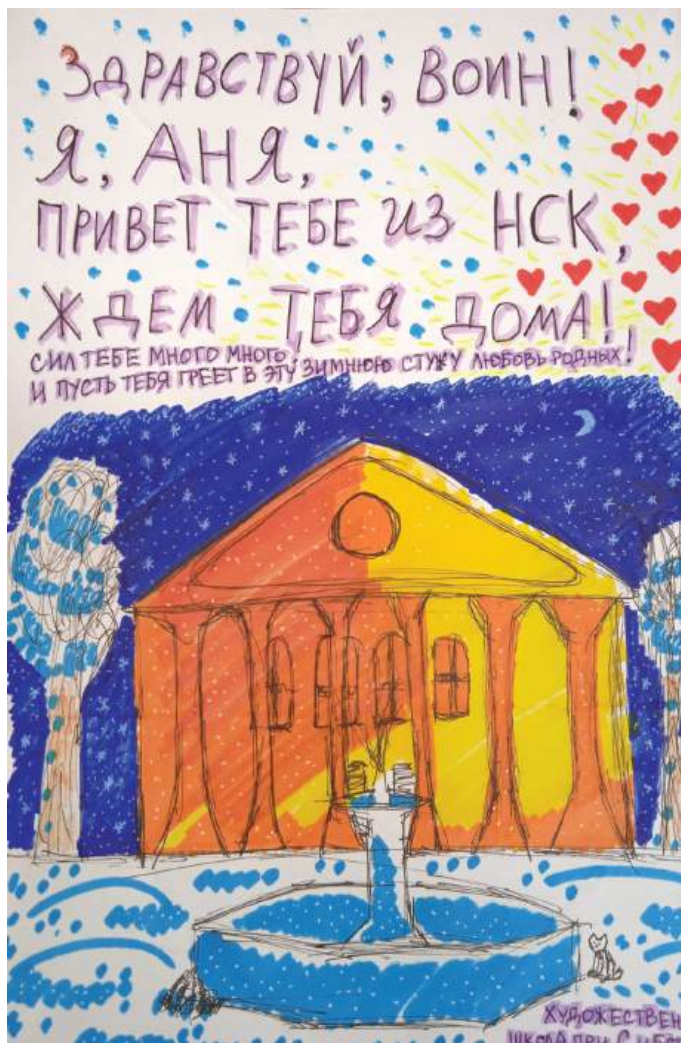 ЗДРАВСТВУЙ, ВОИН!
Я, АНЯ,
ПРИВЕТ ТЕБЕ ИЗ НСК,
ЖДЕМ ТЕБЯ ДОМА!
СИЛ ТЕБЕ МНОГО МНОГО,
И ПУСТЬ ТЕБЯ ГРЕЕТ В ЭТУ ЗИМНЮЮ СТУЖУ ЛЮБОВЬ РОДНЫХ!
ХУДОЖЕСТВЕН
ШКОЛА ПРИ